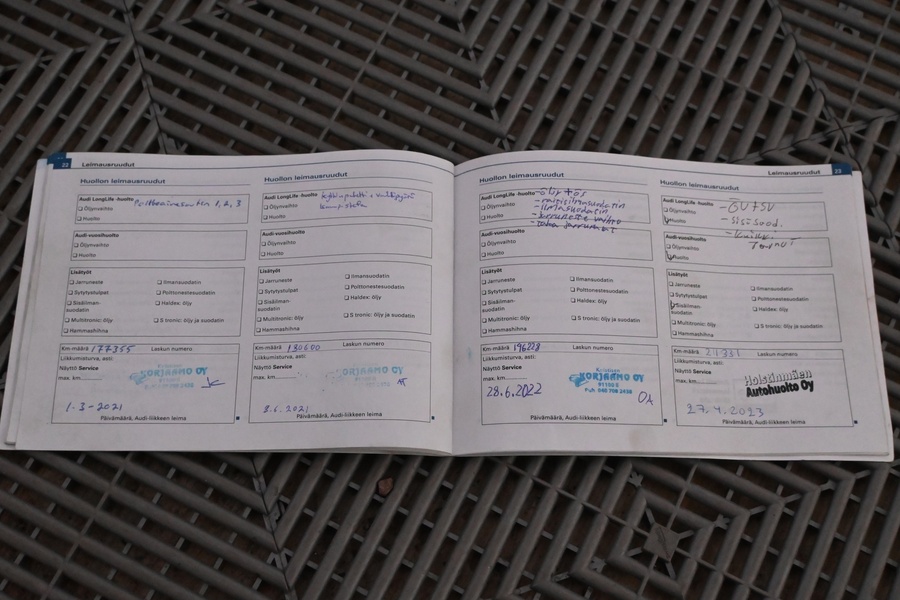 22 Leimausruudut
Huollon leimausruudut
Audi LongLife -huolto Polttoainesuutin 1, 2, 3
Öljynvaihto
Huolto
Audi-vuosihuolto
Öljynvaihto
Huolto
Lisätyöt
Jarruneste
Ilmansuodatin
Sytytystulpat
Polttonestesuodatin
Sisäilman-
suodatin
Haldex: öljy
Multitronic: öljy
S tronic: öljy ja suodatin
Hammashihna
Km-määrä 177355 Laskun numero
Liikkumisturva, asti:
Näyttö Service
max. km
KORJAAMO OY
1-3-2021
Päivämäärä, Audi-liikkeen leima
Huollon leimausruudut
Audi LongLife -huolto
Öljynvaihto
Huolto
Audi-vuosihuolto
Öljynvaihto
Huolto
Lisätyöt
Jarruneste
Ilmansuodatin
Sytytystulpat
Polttonestesuodatin
Sisäilman-
suodatin
Haldex: öljy
Multitronic: öljy
S tronic: öljy ja suodatin
Hammashihna
Km-määrä Laskun numero
Liikkumisturva, asti:
Näyttö Service
max. km
KORJAAMO OY
8.6.2021
Päivämäärä, Audi-liikkeen leima
Leimausruudut 23
Huollon leimausruudut
Audi LongLife -huolto
-raitisilmasuodatin
Öljynvaihto
-ilmasuodatin
Huolto
-jarruneste vaihto
Audi-vuosihuolto
Öljynvaihto
Huolto
Lisätyöt
Jarruneste
Ilmansuodatin
Sytytystulpat
Polttonestesuodatin
Sisäilman-
suodatin
Haldex: öljy
Multitronic: öljy
S tronic: öljy ja suodatin
Hammashihna
Km-määrä 196228 Laskun numero
Liikkumisturva, asti:
Näyttö Service
max. km
KORJAAMO OY
28.6.2022
OA
Päivämäärä, Audi-liikkeen leima
Huollon leimausruudut
Audi LongLife -huolto
Öljynvaihto
-sisäsuod.
Huolto
Audi-vuosihuolto
Öljynvaihto
Huolto
Lisätyöt
Jarruneste
Ilmansuodatin
Sytytystulpat
Polttonestesuodatin
Sisäilman-
suodatin
Haldex: öljy
Multitronic: öljy
S tronic: öljy ja suodatin
Hammashihna
Km-määrä Laskun numero
Liikkumisturva, asti:
Näyttö Service
max. km
Holstinmäen
Autohuolto Oy
27.4.2023
Päivämäärä, Audi-liikkeen leima